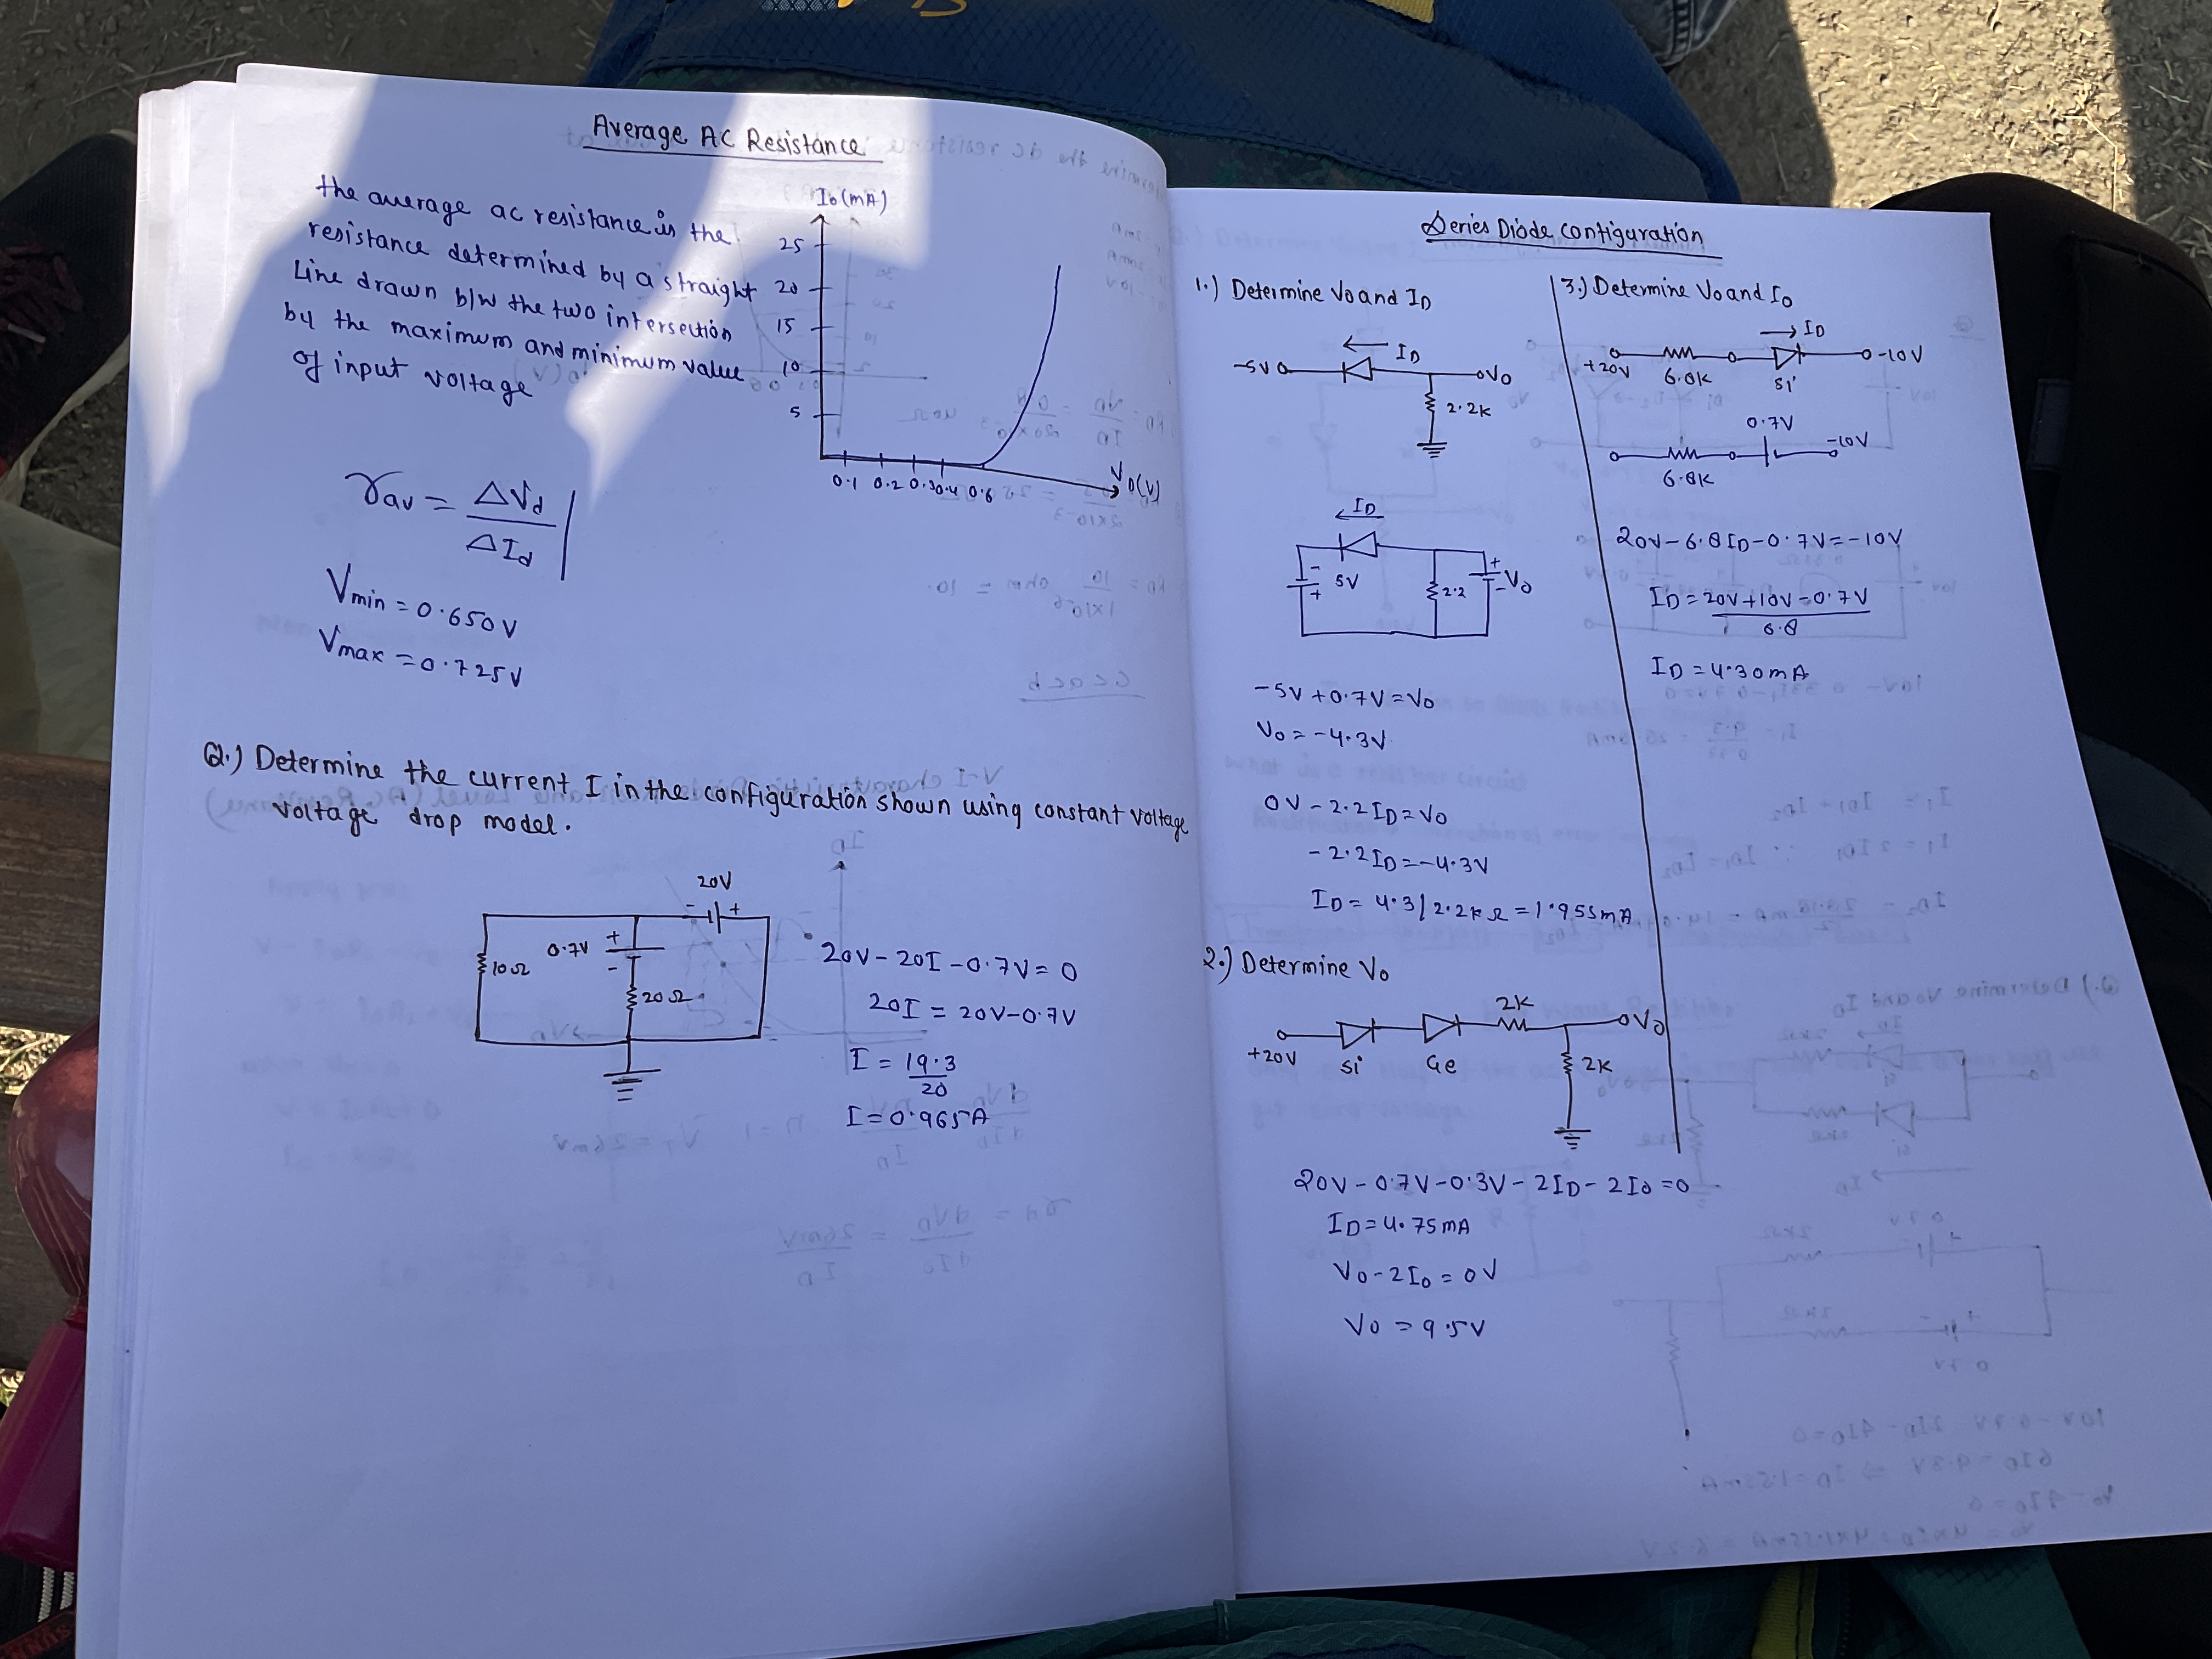 Average AC Resistance
the average ac resistance is the
resistance determined by a straight
Line drawn b/w the two intersection
by the maximum and minimum value
of input voltage
I₀(mA)
25
20
15
10
5
0.1 0.2 0.3 0.4 0.6
V_D(V)
r_av = ΔV_d / ΔI_d |
V_min = 0.650V
V_max = 0.725V
Q.) Determine the current I in the configuration shown using constant voltage
voltage drop model.
20V
- +
0.7V
+
-
10Ω
20Ω
20V - 20I - 0.7V = 0
20I = 20V - 0.7V
I = 19.3 / 20
I = 0.965A
Series Diode Configuration
1.) Determine V₀ and I_D
← I_D
-5V
V₀
2.2K
← I_D
-
+
5V
2.2
+
-
V₀
-5V + 0.7V = V₀
V₀ = -4.3V
0V - 2.2I_D = V₀
- 2.2I_D = -4.3V
I_D = 4.3 / 2.2kΩ = 1.955mA
2.) Determine V₀
+20V
Si
Ge
2K
V₀
2K
20V - 0.7V - 0.3V - 2I_D - 2I₀ = 0
I_D = 4.75mA
V₀ - 2I₀ = 0V
V₀ = 9.5V
3.) Determine V₀ and I₀
→ I_D
+20V
6.8K
Si
-10V
0.7V
6.8K
-10V
20V - 6.8I_D - 0.7V = -10V
I_D = 20V + 10V - 0.7V / 6.8
I_D = 4.30mA